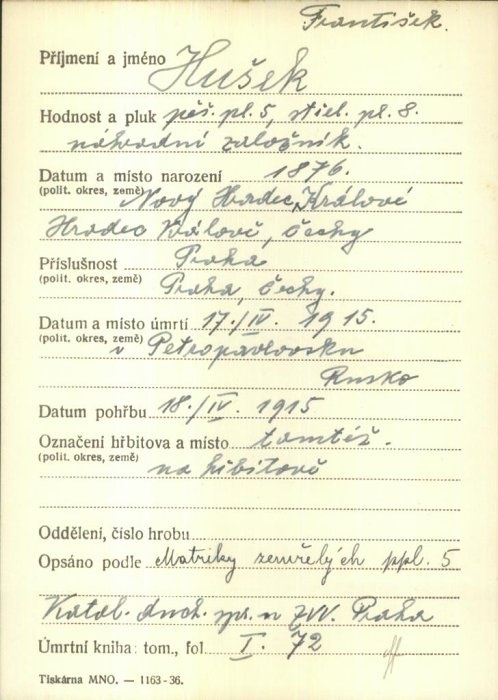 František.
Příjmení a jméno Hušek
Hodnost a pluk pěš. pl. 5, střel. pl. 8.
náhradní záložník.
Datum a místo narození 1876.
(polit. okres, země) Nový Hradec Králové
Hradec Králové, Čechy
Příslušnost Praha
(polit. okres, země) Praha, Čechy.
Datum a místo úmrtí 17./IV. 1915.
(polit. okres, země) v Petropavlovsku
Rusko
Datum pohřbu 18./IV. 1915
Označení hřbitova a místo tamtéž.
(polit. okres, země) na hřbitově
Oddělení, číslo hrobu
Opsáno podle Matriky zemřelých ppl. 5
Katol. duch. spr. u ZVV. Praha
Úmrtní kniha: tom., fol. I. 72
Tiskárna MNO. — 1163-36.